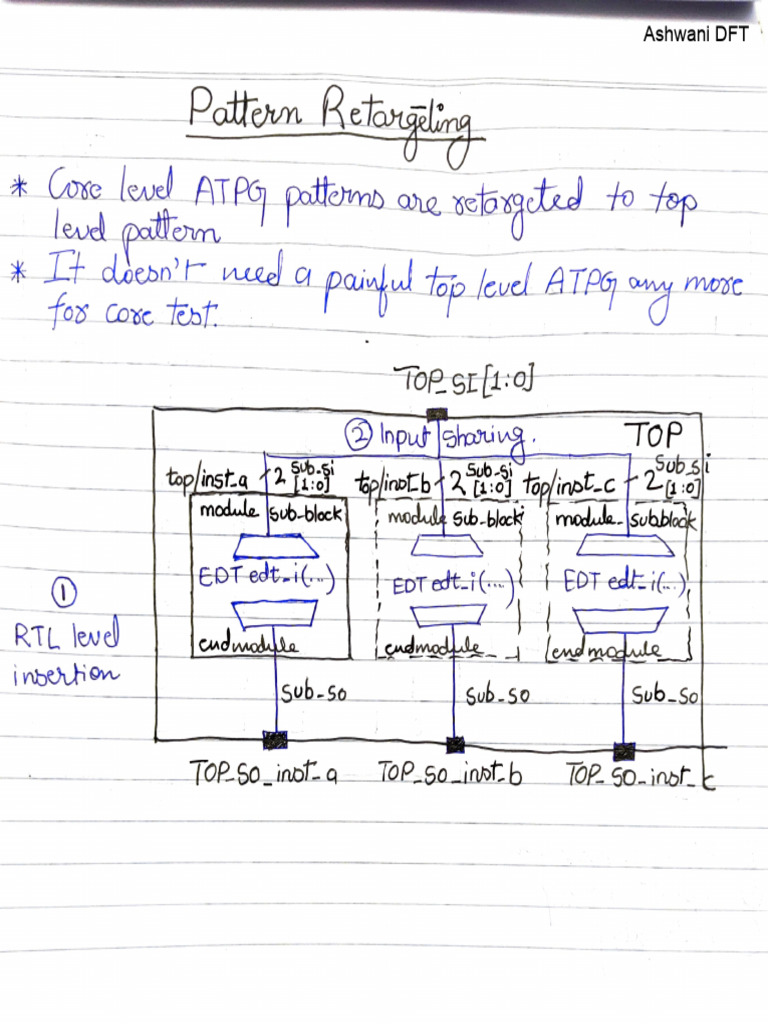 Ashwani DFT
Pattern Retargeting
* Core level ATPG patterns are retargeted to top
level pattern
* It doesn't need a painful top level ATPG any more
for core test.
TOP_SI[1:0]
② Input sharing.
TOP
top/inst_a 2 sub_si [1:0]
top/inst_b 2 sub_si [1:0]
top/inst_c 2 sub_si [1:0]
module sub-block
module sub-block
module_subblock
EDT edt_i(...)
EDT edt_i(....)
EDT edt_i(...)
endmodule
endmodule
endmodule
①
RTL level
insertion
sub_so
sub_so
sub_so
TOP_SO_inst_a
TOP_SO_inst_b
TOP_SO_inst_c